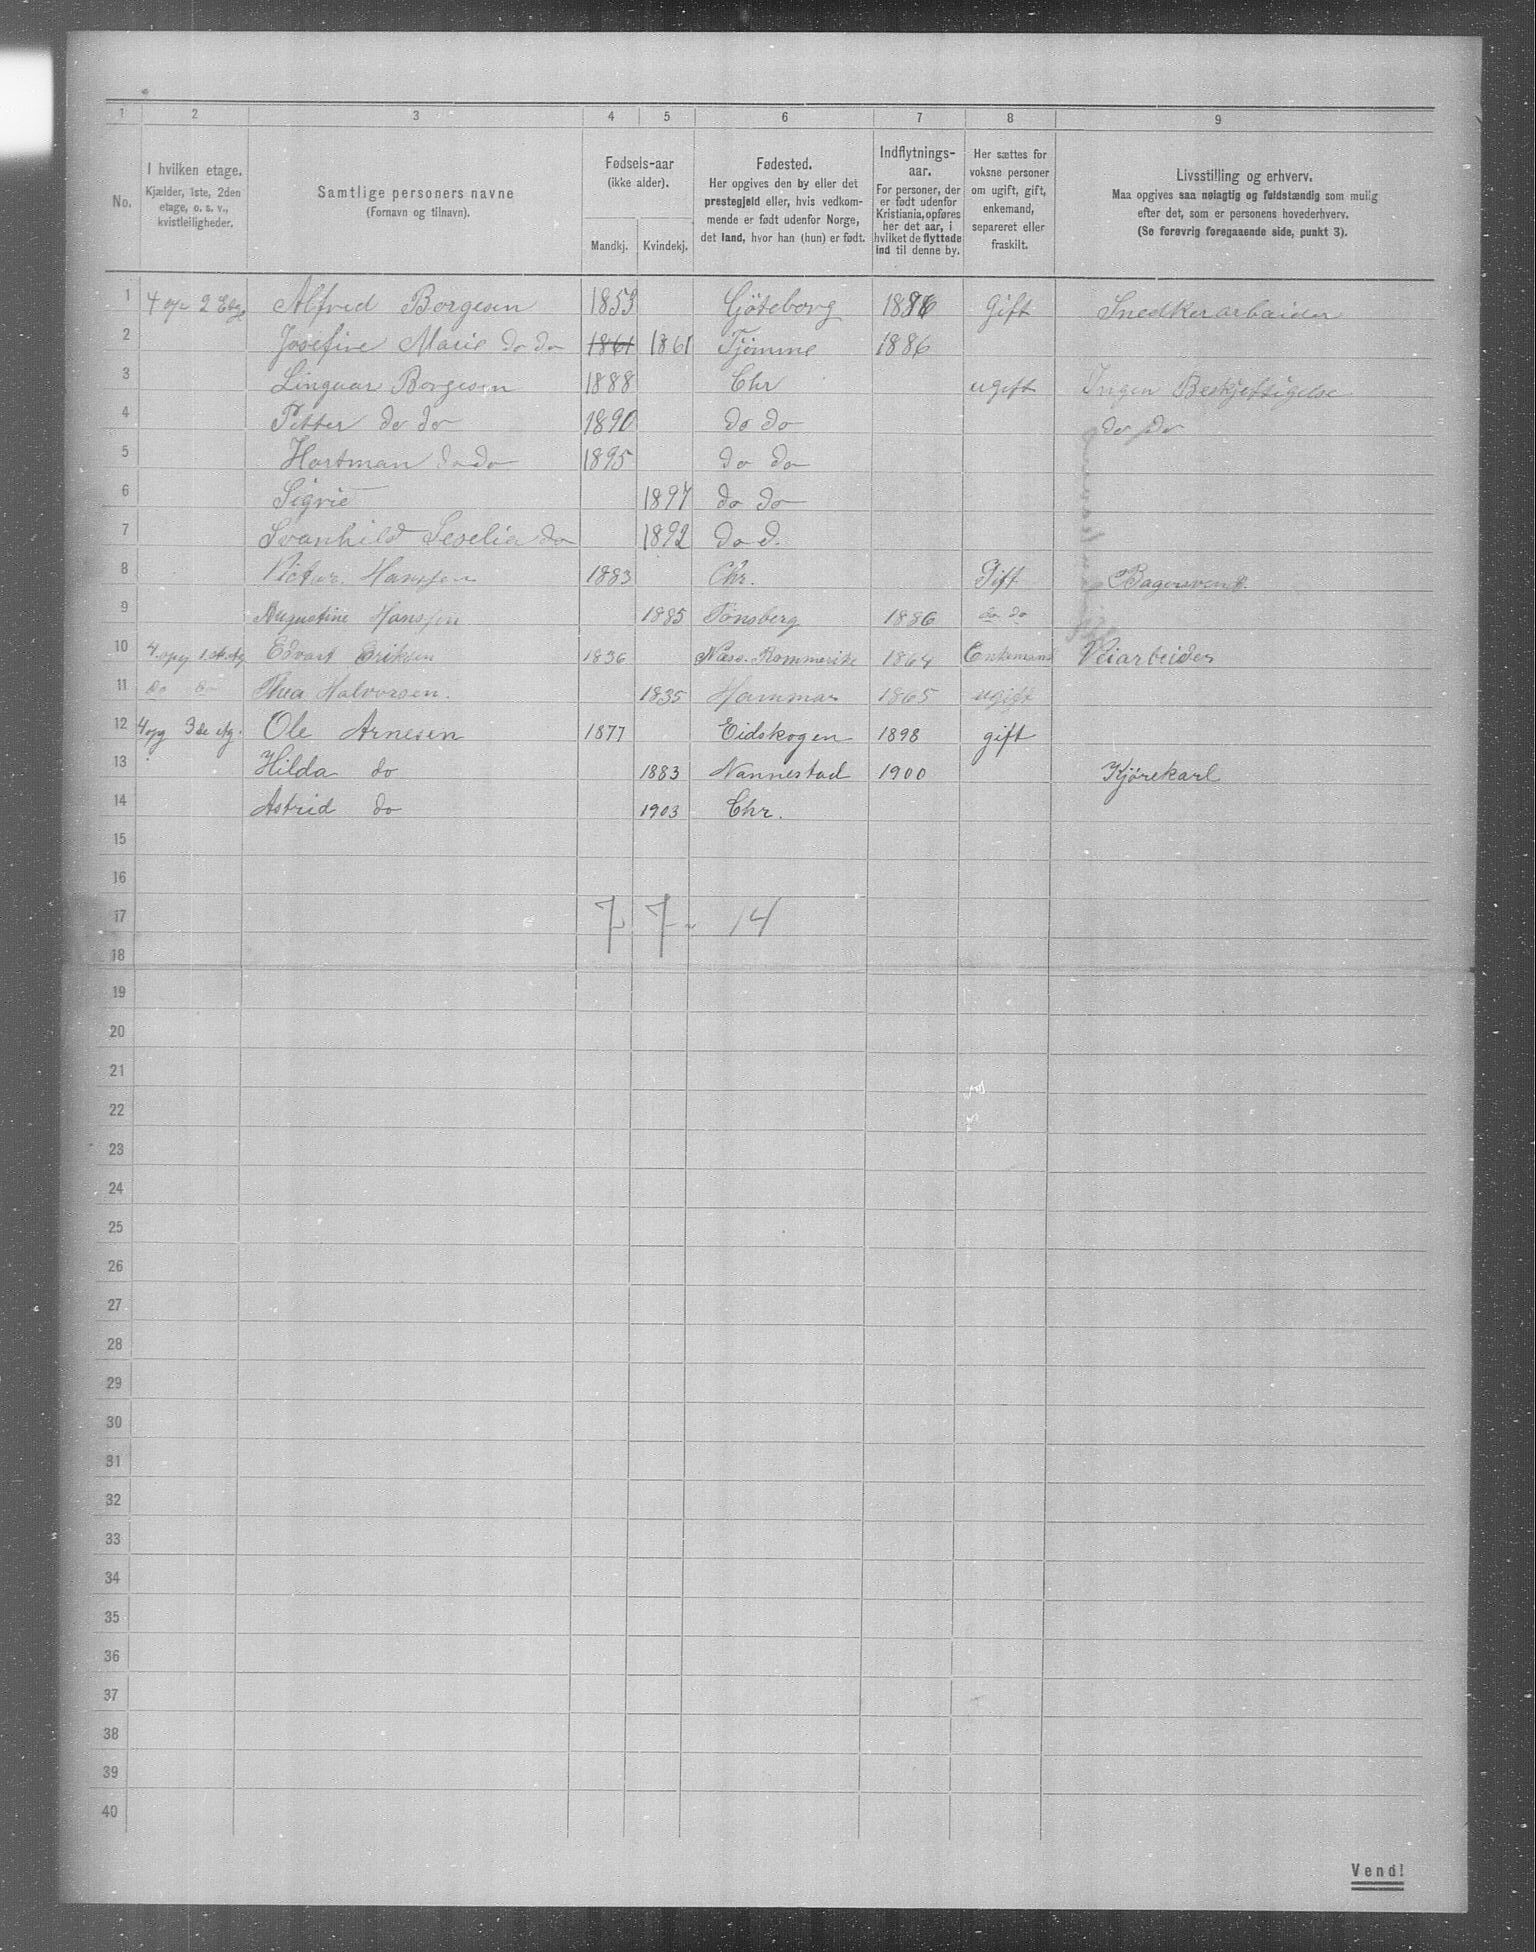 1 2 3 4 5 6 7 8 9
No.
I hvilken etage.
Kjælder, 1ste, 2den
etage, o. s. v.,
kvistleiligheder.
Samtlige personers navne
(Fornavn og tilnavn).
Fødsels-aar
(ikke alder).
Mandkj. Kvindekj.
Fødested.
Her opgives den by eller det
prestegjeld eller, hvis vedkom-
mende er født udenfor Norge,
det land, hvor han (hun) er født.
Indflytnings-
aar.
For personer, der
er født udenfor
Kristiania, opføres
her det aar, i
hvilket de flyttede
ind til denne by.
Her sættes for
voksne personer
om ugift, gift,
enkemand,
separeret eller
fraskilt.
Livsstilling og erhverv.
Maa opgives saa nøiagtig og fuldstændig som mulig
efter det, som er personens hovederhverv.
(Se forøvrig foregaaende side, punkt 3).
1 4 op 2 Etg Alfred Borgesen 1853 Gjöteborg 1886 Gift Snedkerarbaider
2 Josefine Marie do do 1861 1861 Tjømme 1886
3 Lingvar Borgesen 1888 Chr ugift Ingen Beskjeftigelse
4 Petter do do 1890 do do do do
5 Hartman do do 1895 do do
6 Sigrid 1897 do do
7 Svanhild Seselia do 1892 do d.
8 Victor Hanssen 1883 Chr. Gift Bagersvend.
9 Augustine Hanssen 1885 Tønsberg 1886 do do
10 4 opg 1. etg Edvart Eriksen 1836 Næss. Rommerike 1864 Enkemand Veiarbeider
11 do do Thea Halvorsen. 1835 Hammar 1865 ugift
12 4 opg 3de etg. Ole Arnesen 1877 Eidskogen 1898 gift
13 Hilda do 1883 Nannestad 1900 Kjørekarl
14 Astrid do 1903 Chr.
15
16
17 7 7 - 14
18
19
20
21
22
23
24
25
26
27
28
29
30
31
32
33
34
35
36
37
38
39
40
Vend!